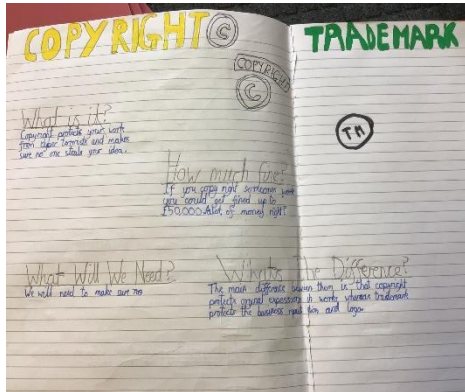 COPYRIGHT ©
TRADEMARK
COPYRIGHT
©
TM
What is it?
Copyright protects your work
from cyber terrorists and makes
sure no one steals your idea.
How much fine?
If you copy right someones work
you could get fined up to
£50,000 Alot of money right?
What Will We Need?
We will need to make sure no
What's The Difference?
The main difference between them is that copyright
protects original expressions in works whereas trademark
protects the business and logo